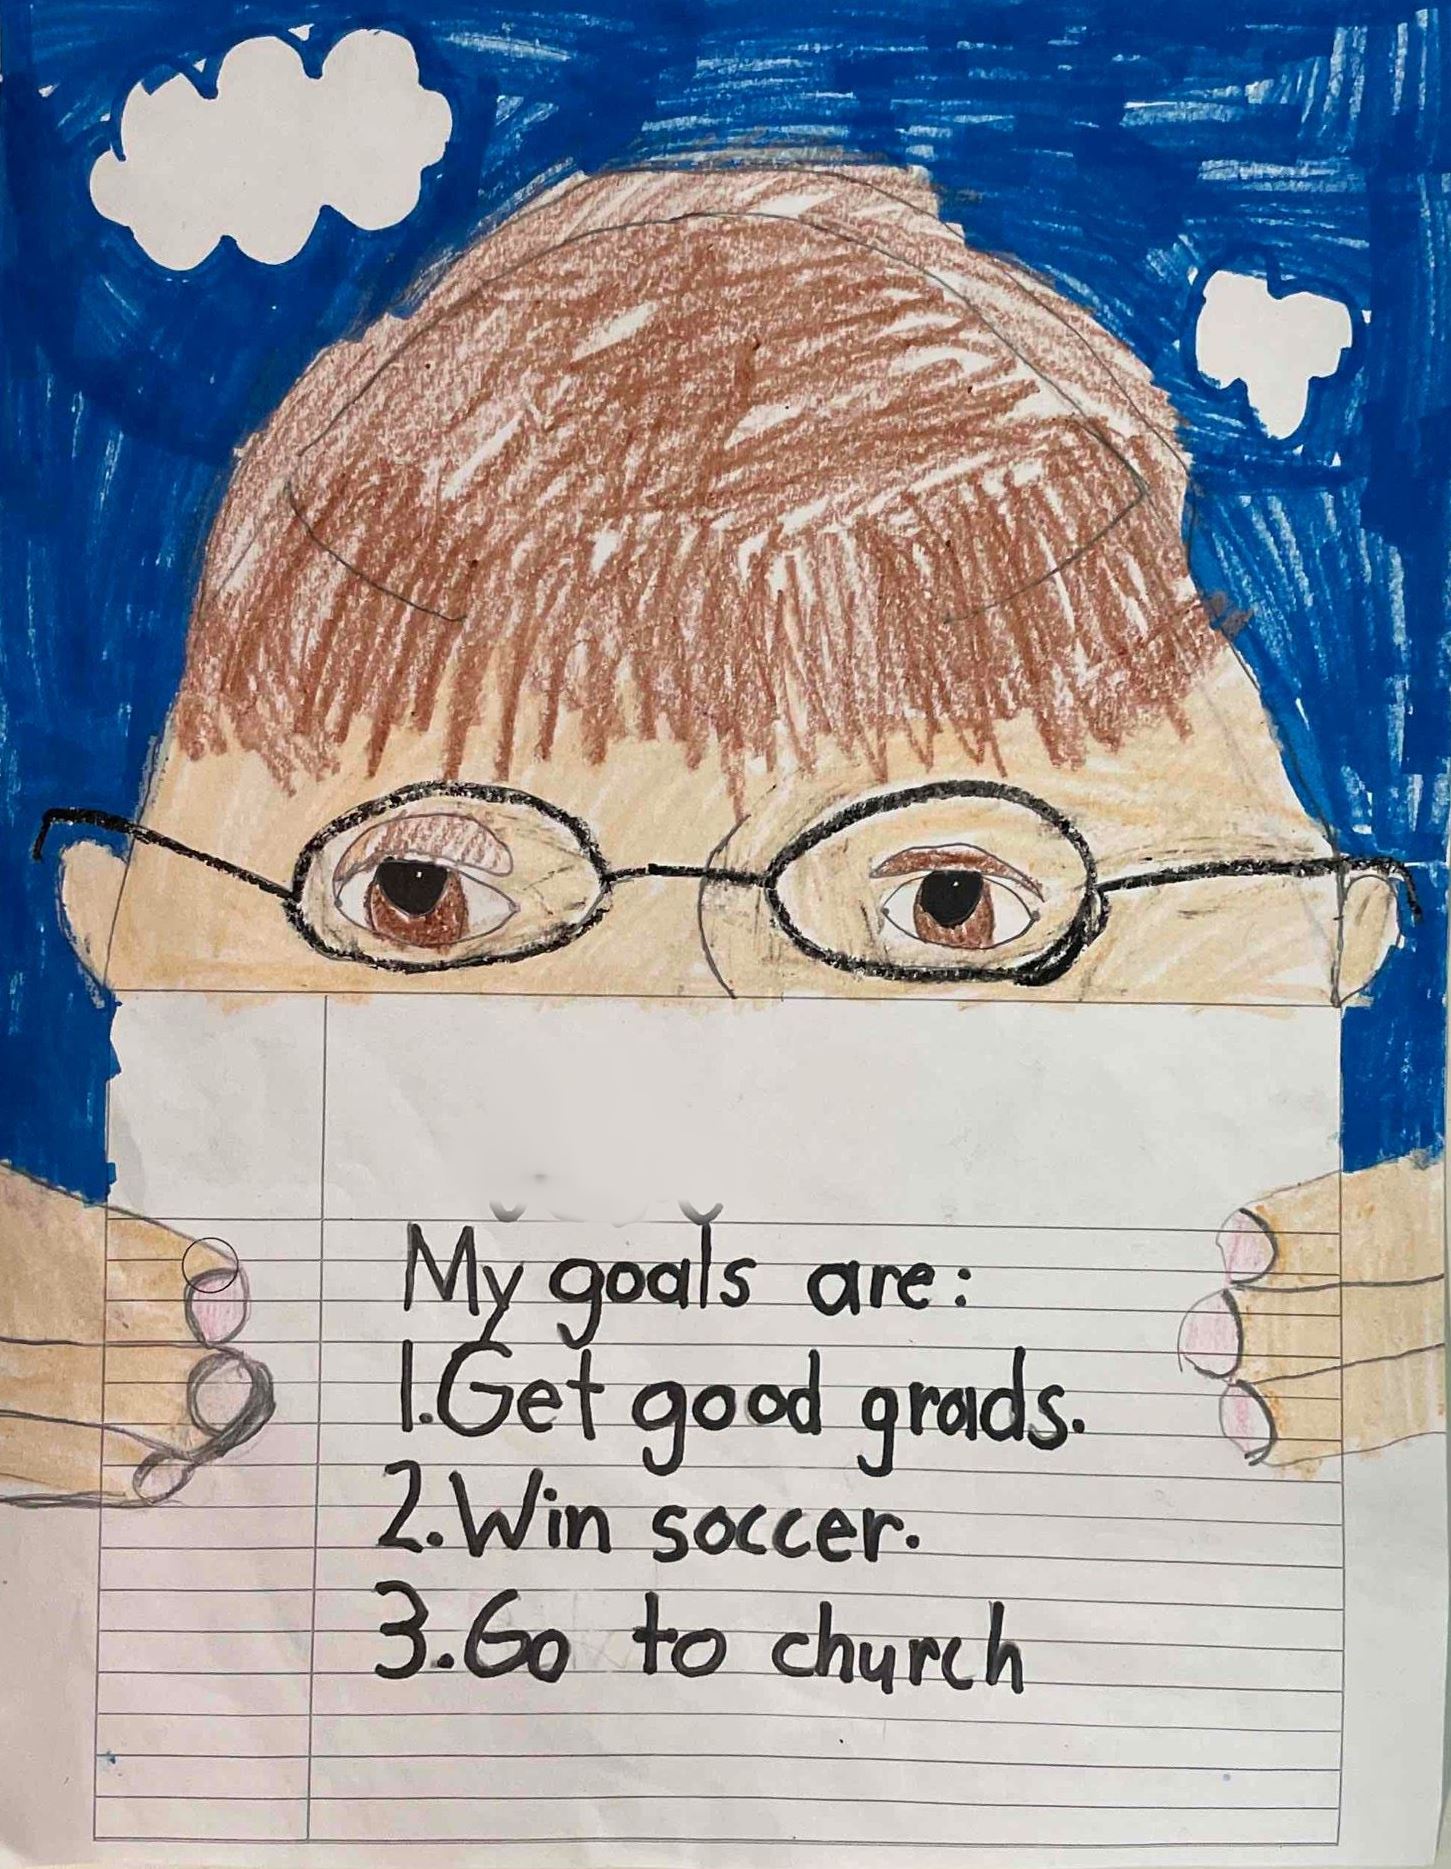 My goals are:
1.Get good grads.
2.Win soccer.
3.Go to church